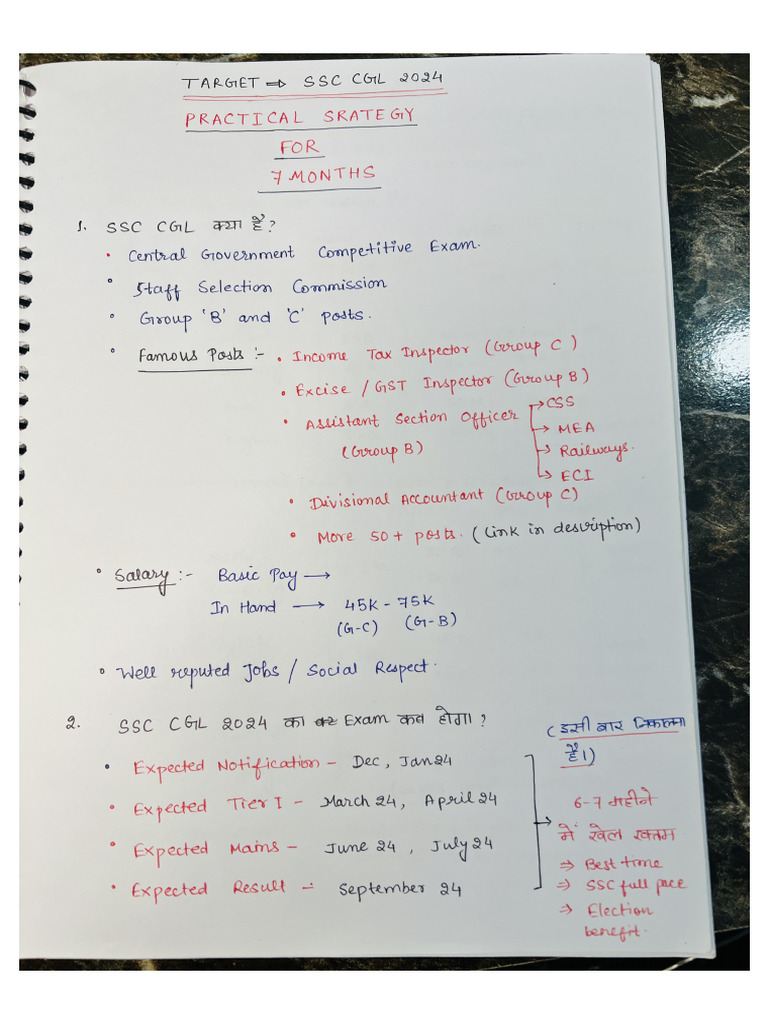 TARGET ⇒ SSC CGL 2024
PRACTICAL SRATEGY
FOR
7 MONTHS
1. SSC CGL क्या है?
• Central Government Competitive Exam.
• Staff Selection Commission
• Group 'B' and 'C' posts.
• Famous Posts :- • Income Tax Inspector (Group C)
• Excise / GST Inspector (Group B)
• Assistant Section Officer → CSS
→ MEA
(Group B) → Railways.
→ ECI
• Divisional Accountant (Group C)
• More 50+ posts. (Link in desviption)
• Salary :- Basic Pay →
In Hand → 45K - 75K
(G-C) (G-B)
• Well reputed Jobs / Social Respect.
2. SSC CGL 2024 का Exam कब होगा?
(इसी बार निकालना
है।)
• Expected Notification - Dec, Jan 24
• Expected Tier I - March 24, April 24
• Expected Mains - June 24, July 24
• Expected Result :- September 24
→ 6-7 महीने
में खेल खतम
⇒ Best time
⇒ SSC full pace
⇒ Election
benefit.